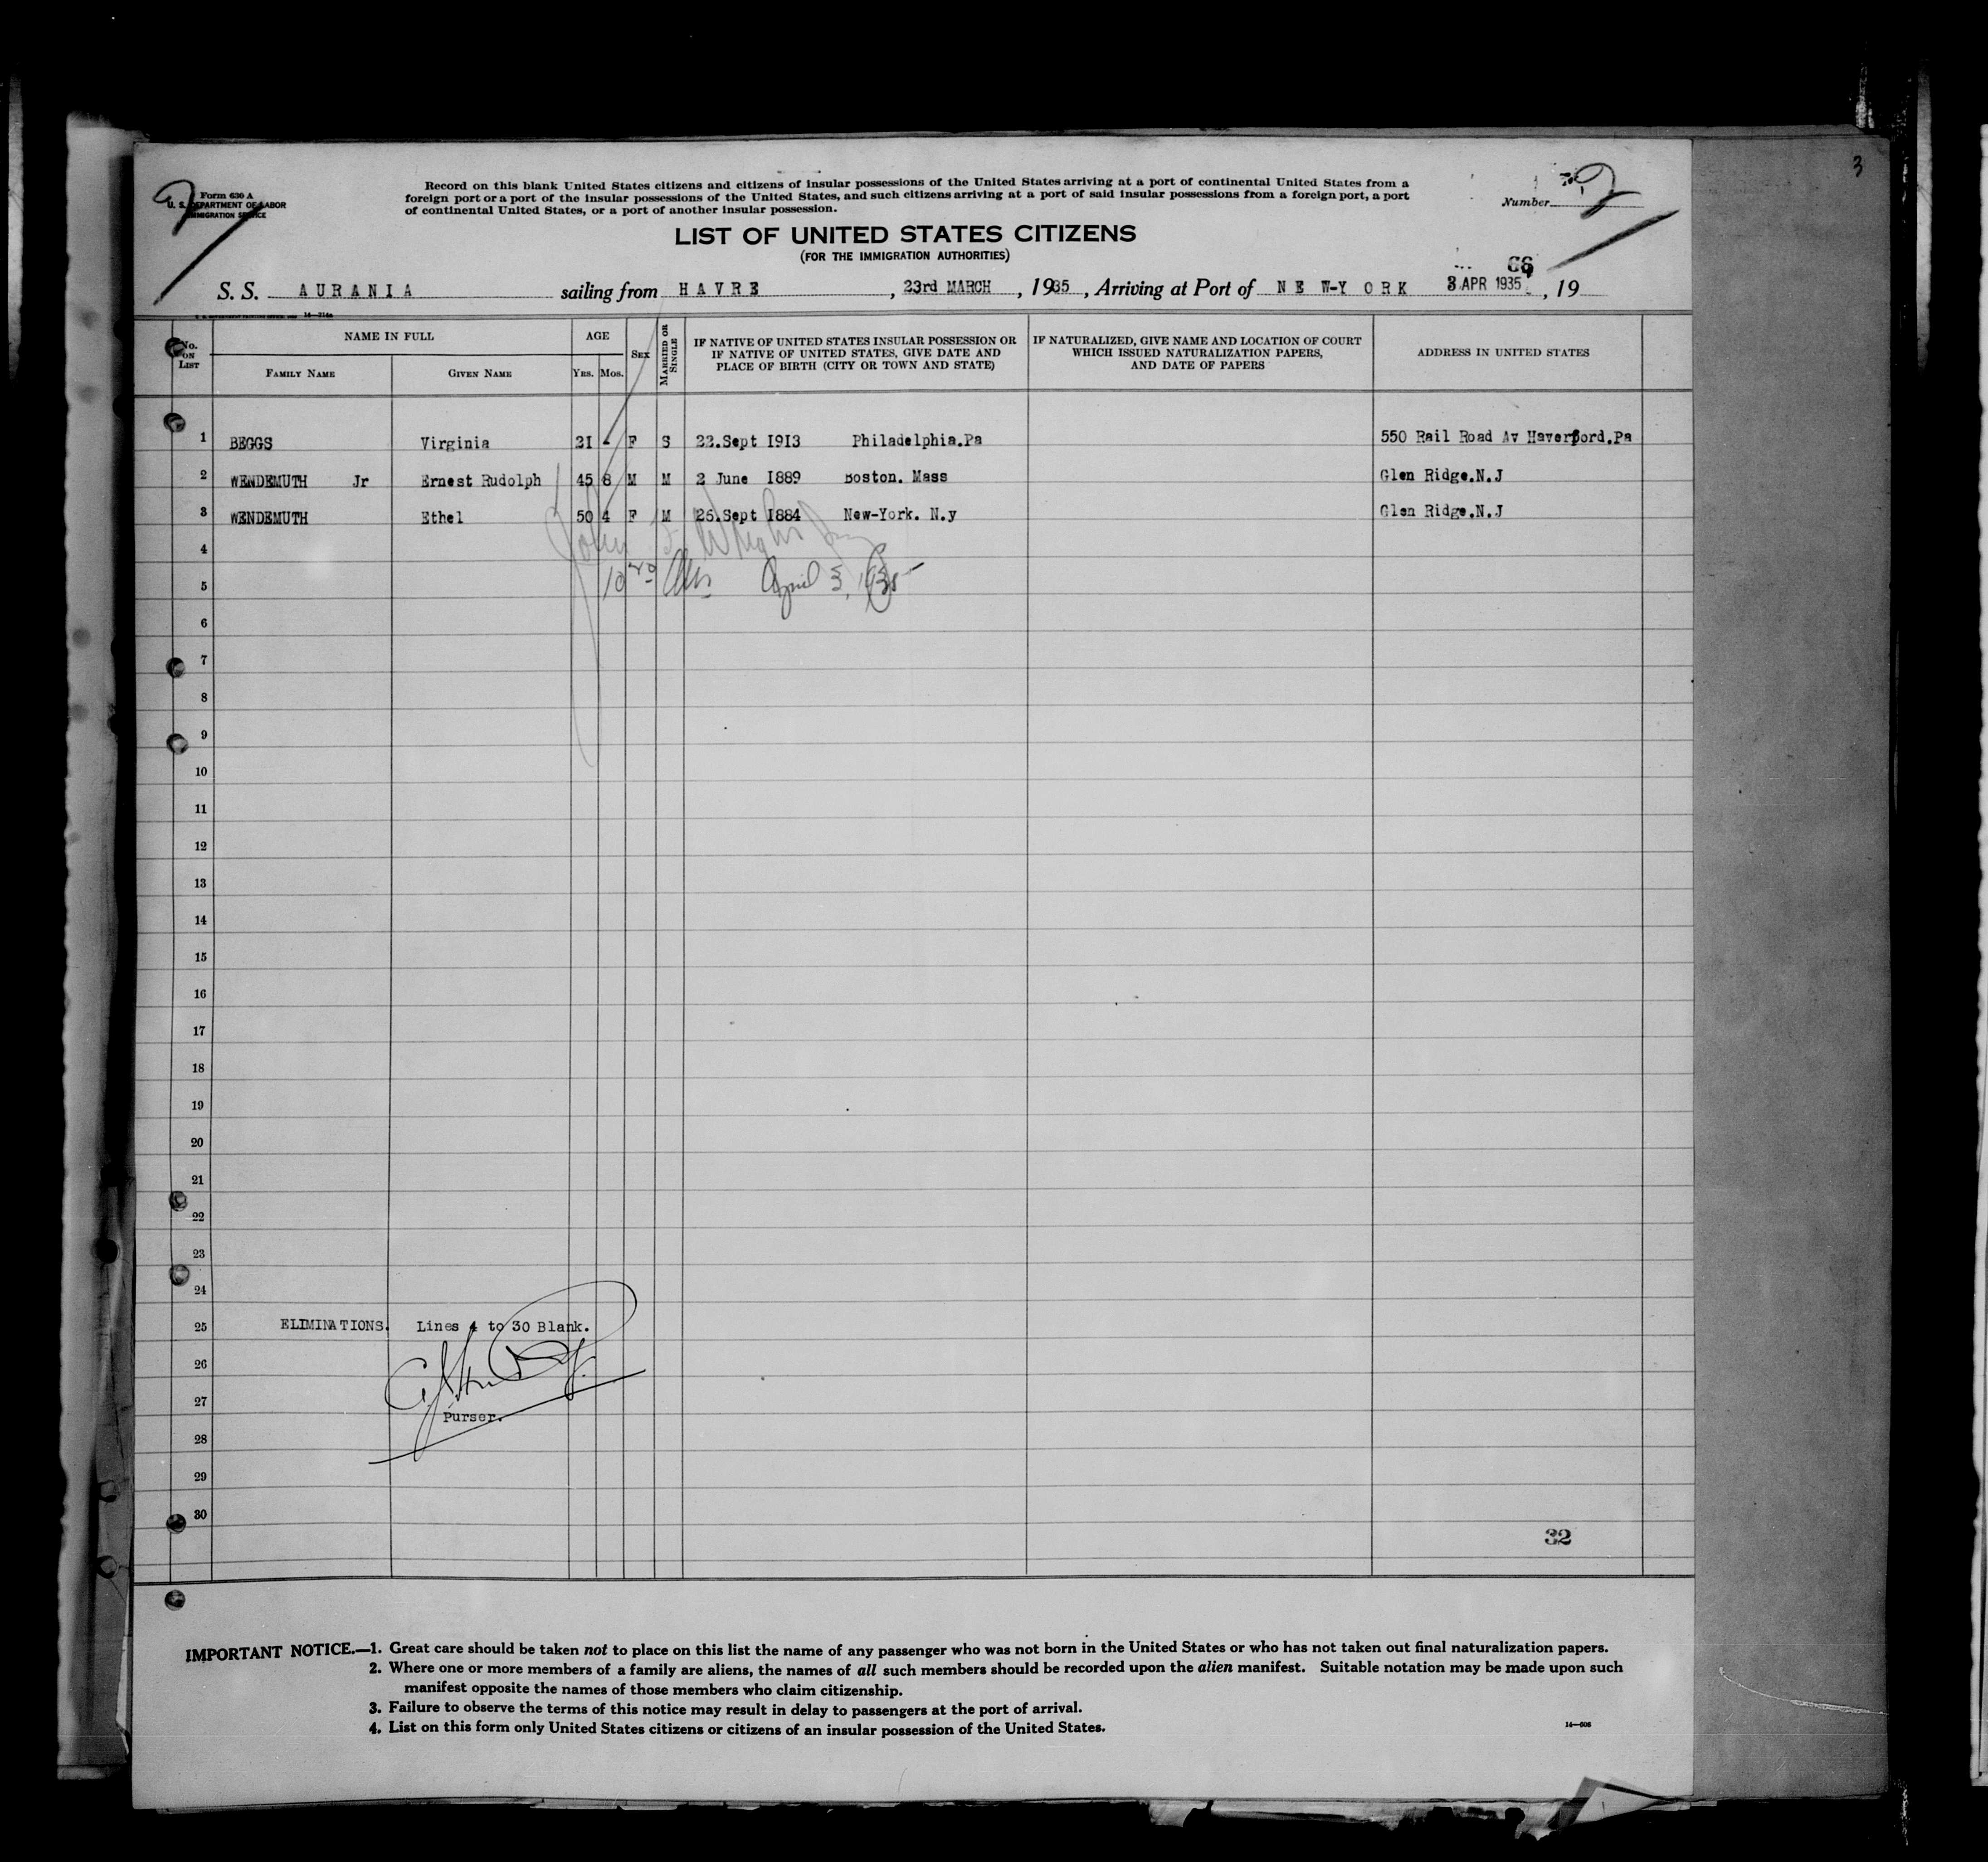 3
Form 630 A
U. S. DEPARTMENT OF LABOR
IMMIGRATION SERVICE
Record on this blank United States citizens and citizens of insular possessions of the United States arriving at a port of continental United States from a
foreign port or a port of the insular possessions of the United States, and such citizens arriving at a port of said insular possessions from a foreign port, a port
of continental United States, or a port of another insular possession.
Number
LIST OF UNITED STATES CITIZENS
(FOR THE IMMIGRATION AUTHORITIES)
66
S. S. AURANIA sailing from HAVRE, 23rd MARCH, 1935, Arriving at Port of NEW-YORK 3 APR 1935, 19
No. ON LIST NAME IN FULL AGE SEX MARRIED OR SINGLE IF NATIVE OF UNITED STATES INSULAR POSSESSION OR IF NATIVE OF UNITED STATES, GIVE DATE AND PLACE OF BIRTH (CITY OR TOWN AND STATE) IF NATURALIZED, GIVE NAME AND LOCATION OF COURT WHICH ISSUED NATURALIZATION PAPERS, AND DATE OF PAPERS ADDRESS IN UNITED STATES
FAMILY NAME GIVEN NAME YRS. MOS.
1 BEGGS Virginia 21 - F S 22.Sept 1913 Philadelphia.Pa 550 Rail Road Av Haverford.Pa
2 WENDEMUTH Jr Ernest Rudolph 45 8 M M 2 June 1889 Boston. Mass Glen Ridge.N.J
3 WENDEMUTH Ethel 50 4 F M 26.Sept 1884 New-York. N.y Glen Ridge.N.J
4
5 April 3, 1935
6
7
8
9
10
11
12
13
14
15
16
17
18
19
20
21
22
23
24
25 ELIMINATIONS. Lines 4 to 30 Blank.
26
27 Purser.
28
29
30
32
IMPORTANT NOTICE.—1. Great care should be taken not to place on this list the name of any passenger who was not born in the United States or who has not taken out final naturalization papers.
2. Where one or more members of a family are aliens, the names of all such members should be recorded upon the alien manifest. Suitable notation may be made upon such
manifest opposite the names of those members who claim citizenship.
3. Failure to observe the terms of this notice may result in delay to passengers at the port of arrival.
4. List on this form only United States citizens or citizens of an insular possession of the United States.